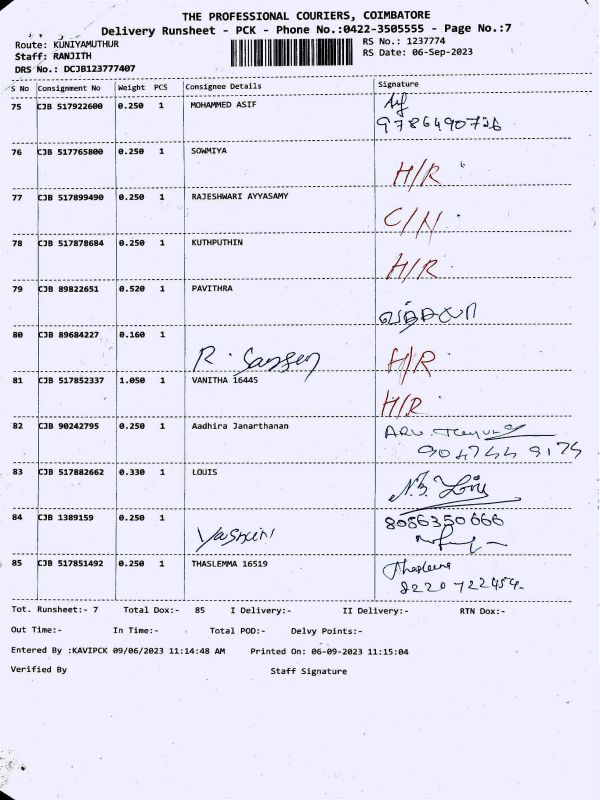 THE PROFESSIONAL COURIERS, COIMBATORE
Delivery Runsheet - PCK - Phone No.:0422-3505555 - Page No.:7
Route: KUNIYAMUTHUR
RS No.: 1237774
Staff: RANJITH
RS Date: 06-Sep-2023
DRS No.: DCJB123777407
S No Consignment No Weight PCS Consignee Details Signature
75 CJB 517922600 0.250 1 MOHAMMED ASIF
9786490726
76 CJB 517765800 0.250 1 SOWMIYA
H/R
77 CJB 517899490 0.250 1 RAJESHWARI AYYASAMY
C/N
78 CJB 517878684 0.250 1 KUTHPUTHIN
H/R
79 CJB 89822651 0.520 1 PAVITHRA
80 CJB 89684227 0.160 1
R. H/R
81 CJB 517852337 1.050 1 VANITHA 16445
H/R
82 CJB 90242795 0.250 1 Aadhira Janarthanan
9047449174
83 CJB 517882662 0.330 1 LOUIS
84 CJB 1389159 0.250 1 8056350666
Yashini
85 CJB 517851492 0.250 1 THASLEMMA 16519
8220722454
Tot. Runsheet:- 7 Total Dox:- 85 I Delivery:- II Delivery:- RTN Dox:-
Out Time:- In Time:- Total POD:- Delvy Points:-
Entered By :KAVIPCK 09/06/2023 11:14:48 AM Printed On: 06-09-2023 11:15:04
Verified By Staff Signature